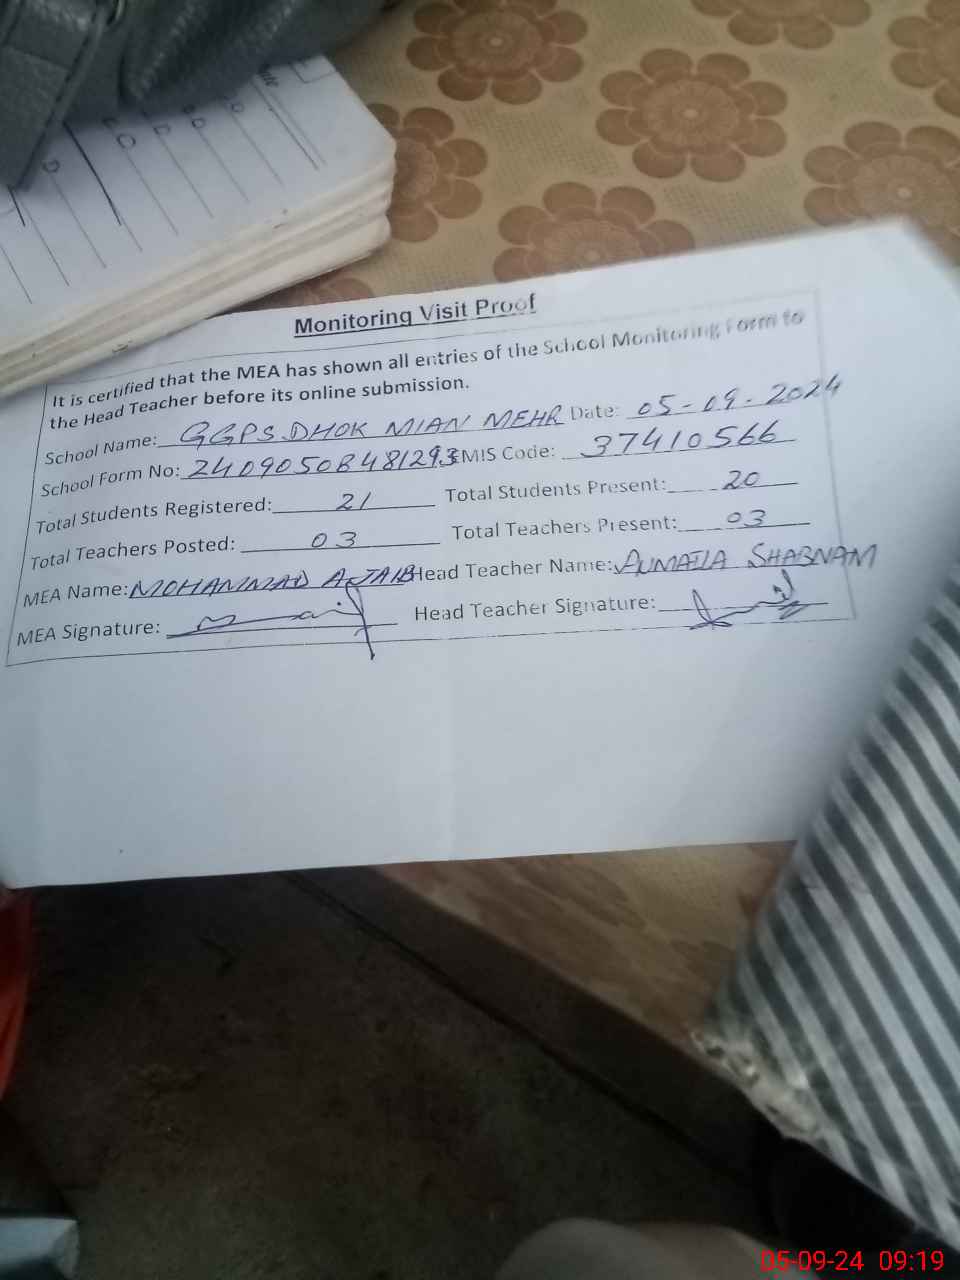 Date
Monitoring Visit Proof
It is certified that the MEA has shown all entries of the School Monitoring Form to
the Head Teacher before its online submission.
School Name: GGPS DHOK MIAN MEHR Date: 05-09-2024
School Form No: 24090508481293 EMIS Code: 37410566
Total Students Registered: 21 Total Students Present: 20
Total Teachers Posted: 03 Total Teachers Present: 03
MEA Name: MOHAMMAD AJAIB Head Teacher Name: SHABNAM
MEA Signature: Head Teacher Signature:
05-09-24 09:19